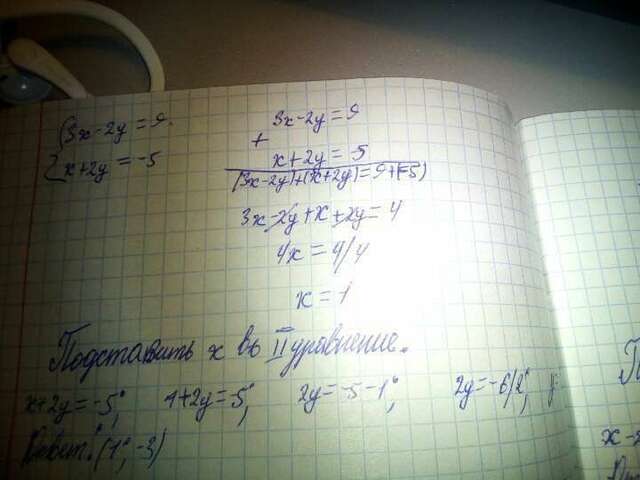 {3x-2y=9.
{x+2y=-5
3x-2y=9
+
x+2y=-5
(3x-2y)+(x+2y)=9+(-5)
3x-2y+x+2y=4
4x=4/4
x=1
Подставить x во II уравнение.
x+2y=-5; 1+2y=5; 2y=-5-1; 2y=-6/2; y
Ответ: (1; -3)
П
x-2